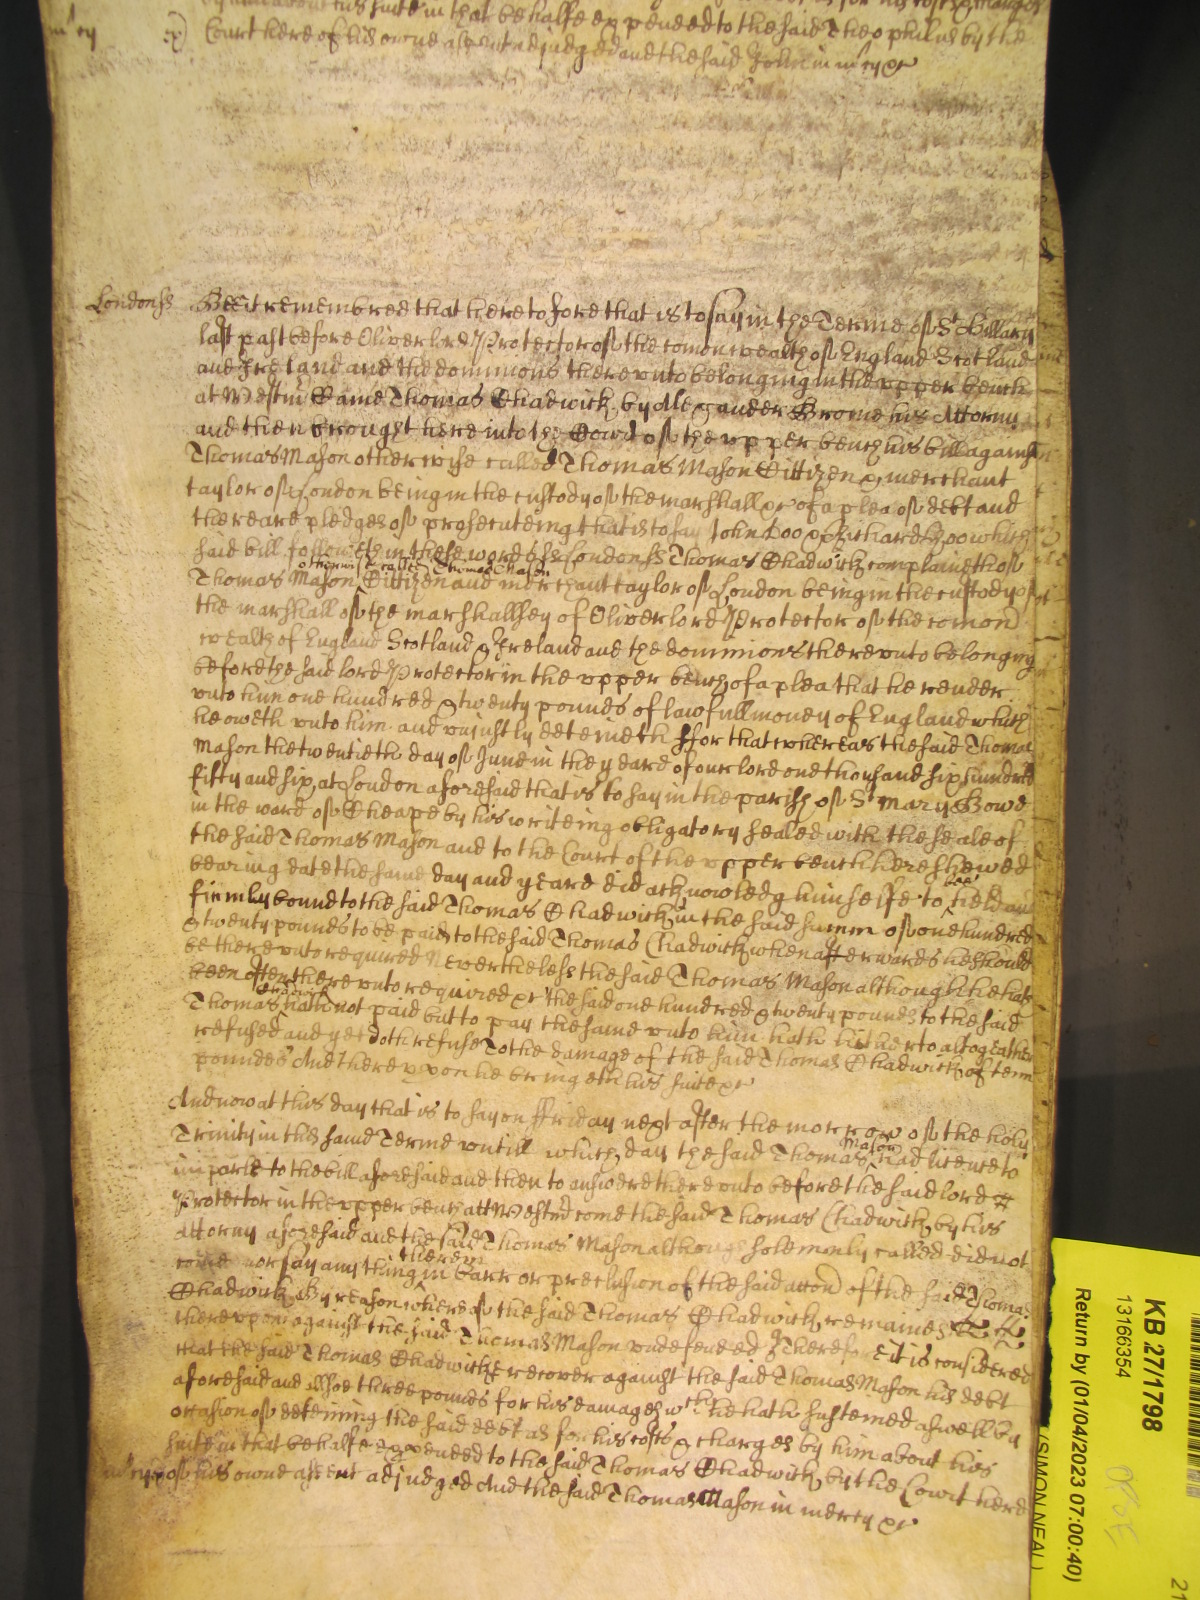 suite in that behalfe expended to the said Theophilus by the
Court here of his owne assent adjudged and the said John in mercy &c
Londonss Bee it remembred that heretofore that is to say in the Terme of St Hillary
last past before Oliver lord Protector of the comonwealth of England Scotland
and Ireland and the dominions thereunto belonging in the upper bench
at Westmr Came Thomas Chadwick by Alexander Brome his Attorny
and then brought here into the Court of the upper bench his bill against
Thomas Mason otherwise called Thomas Mason Cittizen & merchant
taylor of London being in the custody of the marshall &c of a plea of debt and
there are pledges of prosecuteing that is to say John Doo & Richard Roo which
said bill followeth in these words ss Londonss Thomas Chadwick complaineth of
Thomas Mason otherwise called Thomas Mason Cittizen and merchant taylor of London being in the custody of
the marshall of the marshallsey of Oliver lord Protector of the comon
wealth of England Scotland & Ireland and the dominions thereunto belonging
before the said lord Protector in the upper bench of a plea that he render
unto him one hundred & twenty pounds of lawfull money of England which
he oweth unto him and unjustly deteineth ffor that whereas the said Thomas
Mason the twentieth day of June in the yeare of our lord one thousand six hundred
fifty and six at London aforesaid that is to say in the parish of St Mary Bowe
in the ward of Cheape by his writeing obligatory sealed with the seale of
the said Thomas Mason and to the Court of the upper bench here shewed
beareing date the same day and yeare did acknowledg himselfe to bee held and
firmly bound to the said Thomas Chadwick in the said summ of one hundred
& twenty pounds to be paid to the said Thomas Chadwick when afterwards he should
be thereunto required Nevertheless the said Thomas Mason although he hath
been often thereunto required &c the said one hundred & twenty pounds to the said
Thomas Chadwick hath not paid but to pay the same unto him hath hitherto altogeather
refused and yet doth refuse To the damage of the said Thomas Chadwick of tenn
poundes And thereupon he bringeth his suite &c
And now at this day that is to say on ffriday next after the morrow of the holy
Trinity in this same Terme untill which day the said Thomas Mason had licence to
imparle to the bill aforesaid and then to answere thereunto before the said lord
Protector in the upper bench att Westmr come the said Thomas Chadwick by his
Attorny aforesaid and the said Thomas Mason although solemnly called did not
come nor say any thing in barr or preclusion of the said accon of the said Thomas
Chadwick By reason whereof the said Thomas Chadwick remaines therein
thereupon against the said Thomas Mason undefended Therefore it is considered
that the said Thomas Chadwick recover against the said Thomas Mason his debt
aforesaid and allsoe three pounds for his damages wch he hath susteined aswell by
occasion of deteining the said debt as for his costs & charges by him about his
suite in that behalfe expended to the said Thomas Chadwick by the Court here
mercy of his owne assent adjudged And the said Thomas Mason in mercy &c
KB 27/1798
13166354
Return by (01/04/2023 07:00:40)
(SIMON NEAL)